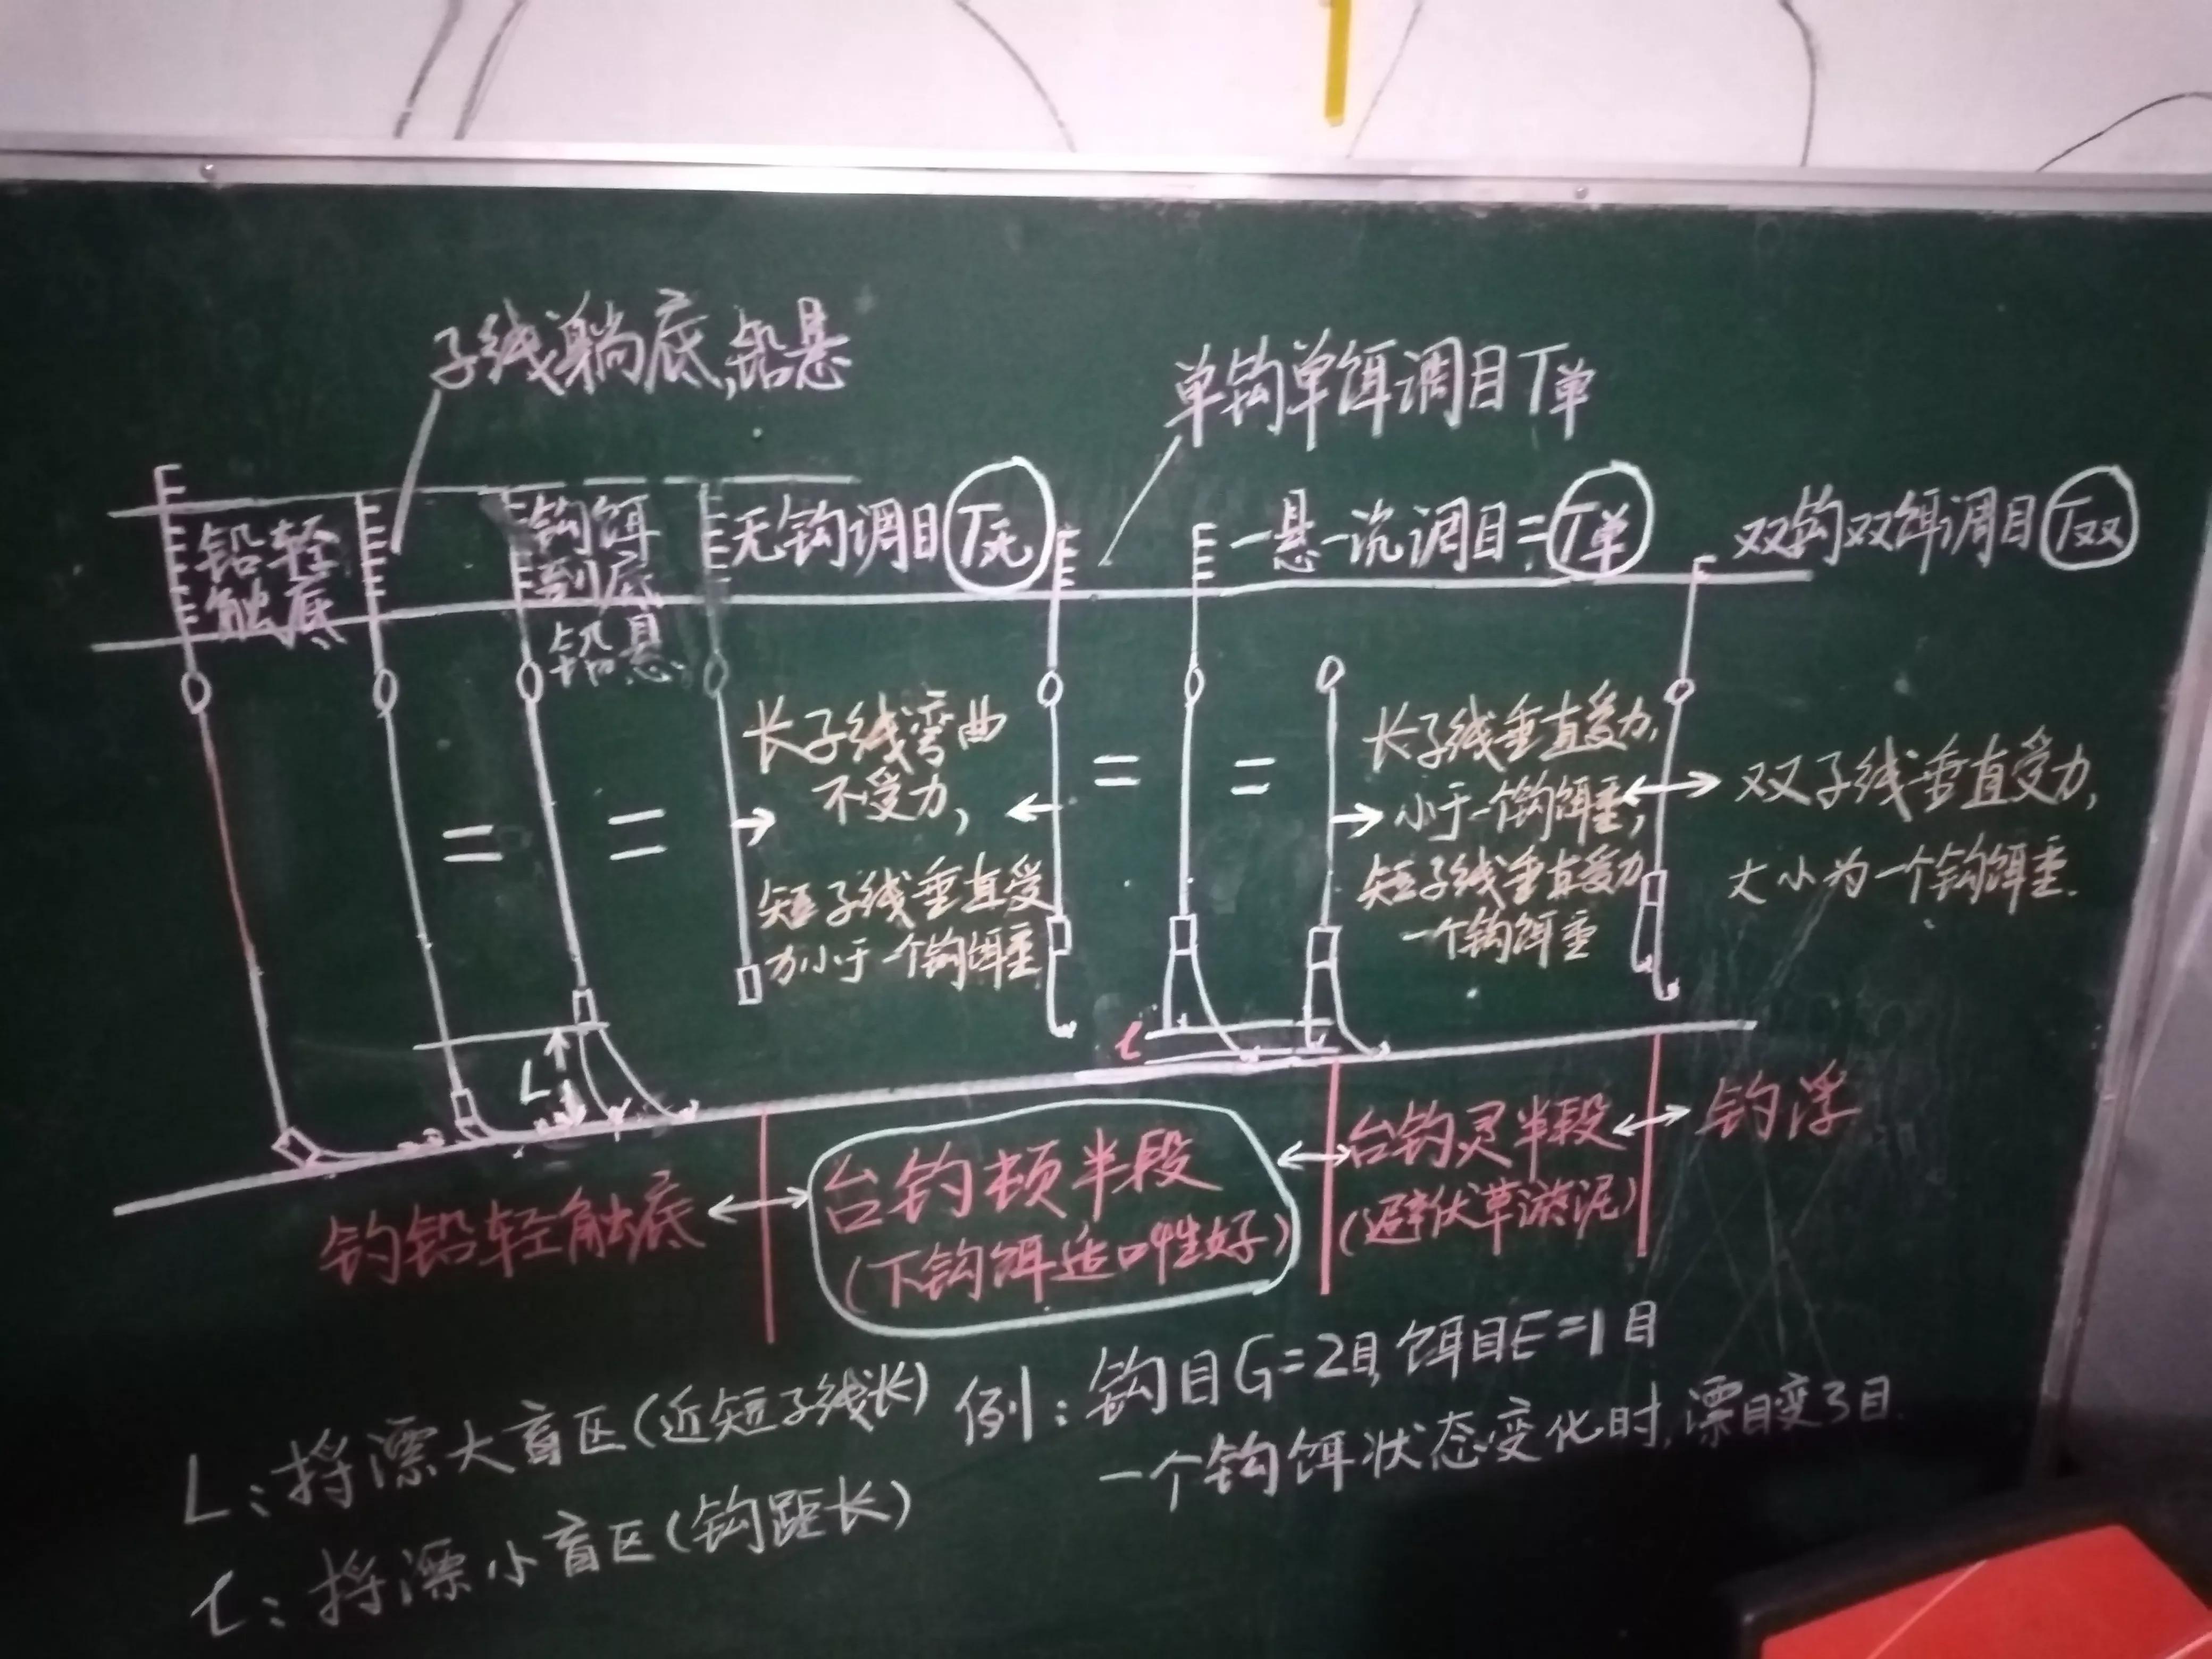 子线躺底,铅悬
单钩单饵调目T单
铅轻
触底
钩饵
到底
铅悬
无钩调目T无
一悬一沉调目=T单
双钩双饵调目T双
长子线弯曲
不受力,
短子线垂直受
力小于一个钩饵重
= = = =
长子线垂直受力,
小于一个钩饵重,
短子线垂直受力
一个钩饵重
双子线垂直受力,
大小为一个钩饵重.
L
l
钓铅轻触底
台钓顿半段
(下钩饵适口性好)
台钓灵半段
(避伏草淤泥)
钓浮
L:捋漂大盲区(近短子线长)
l:捋漂小盲区(钩距长)
例:钩目G=2目,饵目E=1目
一个钩饵状态变化时,漂目变3目.